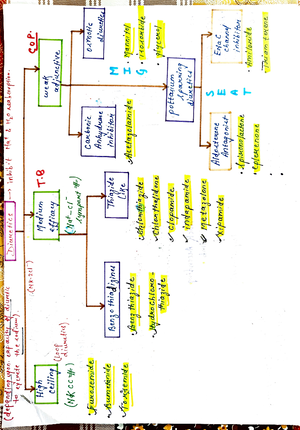 Diuretics → Inhibit Na+ & H2O reabsorption.
(depending upon capacity of diuretic
to excrete the sodium).
High
ceiling
(loop
diuretics)
Medium
efficacy
T.B
(Na+-Cl-
symport ⊣)
weak
adjunctive
C.O.P.
• Furosemide
• Bumetanide
• Torsemide
Benzothiadiazines
• Benzthiazide
• Hydrochlorothiazide
Thiazide
Like
• Chlorothiazide
• Chlorthalidone
• Clopamide
• Indapamide
• Metazolone
• Xipamide
Carbonic
Anhydrase
inhibitors
• Acetazolamide
osmotic
diuretics
• Mannitol
• isosorbide
• glycerol
M
I
G
potassium
sparing
diuretics
S
E
A
T
Aldosterone
Antagonist
• Spironolactone
• Eplerenone
ENaC
channel
inhibitors
• Amiloride
• Triamterene